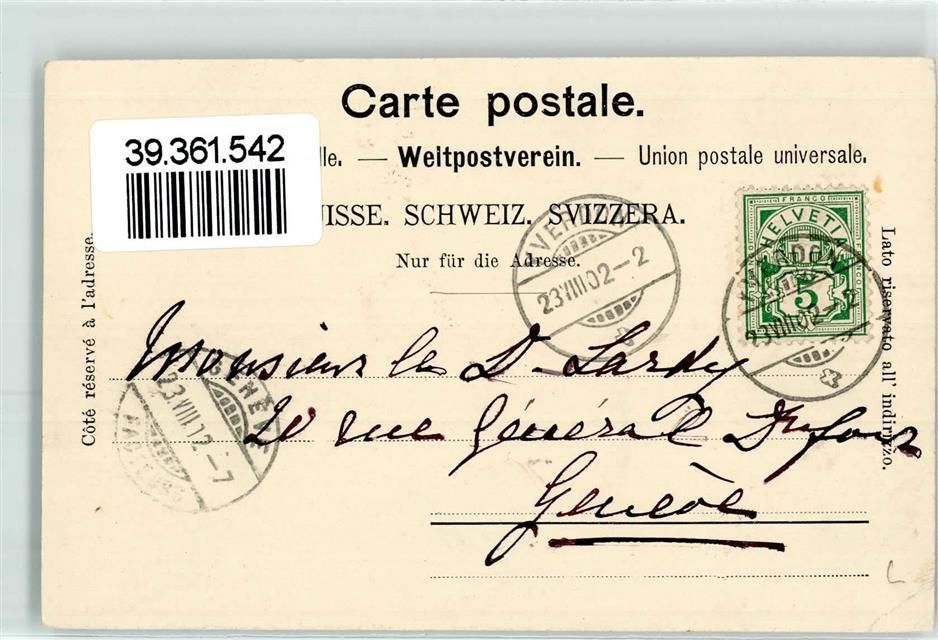 Carte postale.
39.361.542
lle. — Weltpostverein. — Union postale universale.
UISSE. SCHWEIZ. SVIZZERA.
Nur für die Adresse.
Côté réservé à l'adresse.
Lato riservato all' indirizzo.
FRANCO
HELVETIA
5
23.VIII.02-2
23.VIII.02-2
GENÈVE
23.VIII.02-7
Monsieur le D. Lardy
20 rue Général Dufour
Genève